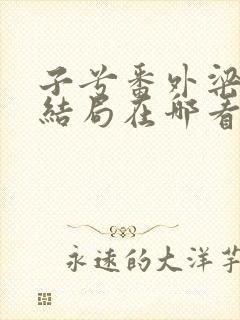 子兮番外梁
結局在那看
永遠的大洋芋